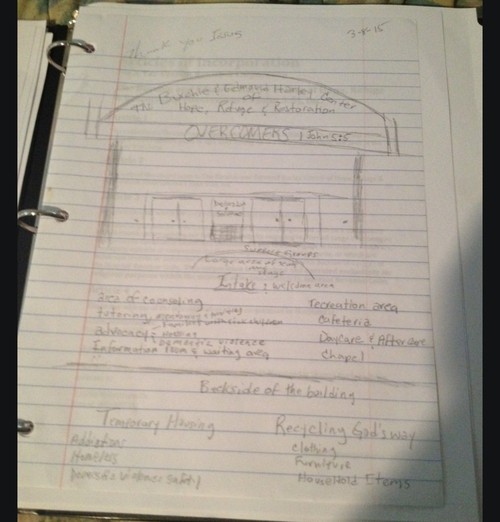 Thank you Jesus
3-8-15
& Edmond Harley Center
of
Hope, Refuge & Restoration
OVERCOMERS 1 John 5:5
Support Groups
Intake & welcome area
area of counseling
Recreation area
tutoring
Cafeteria
advocacy
Domestic violence
Daycare & Aftercare
Information room & waiting area
Chapel
Backside of the building
Temporary Housing
Recycling God's way
Addictions
Clothing
Homeless
Furniture
Domestic violence safety
HouseHold Items